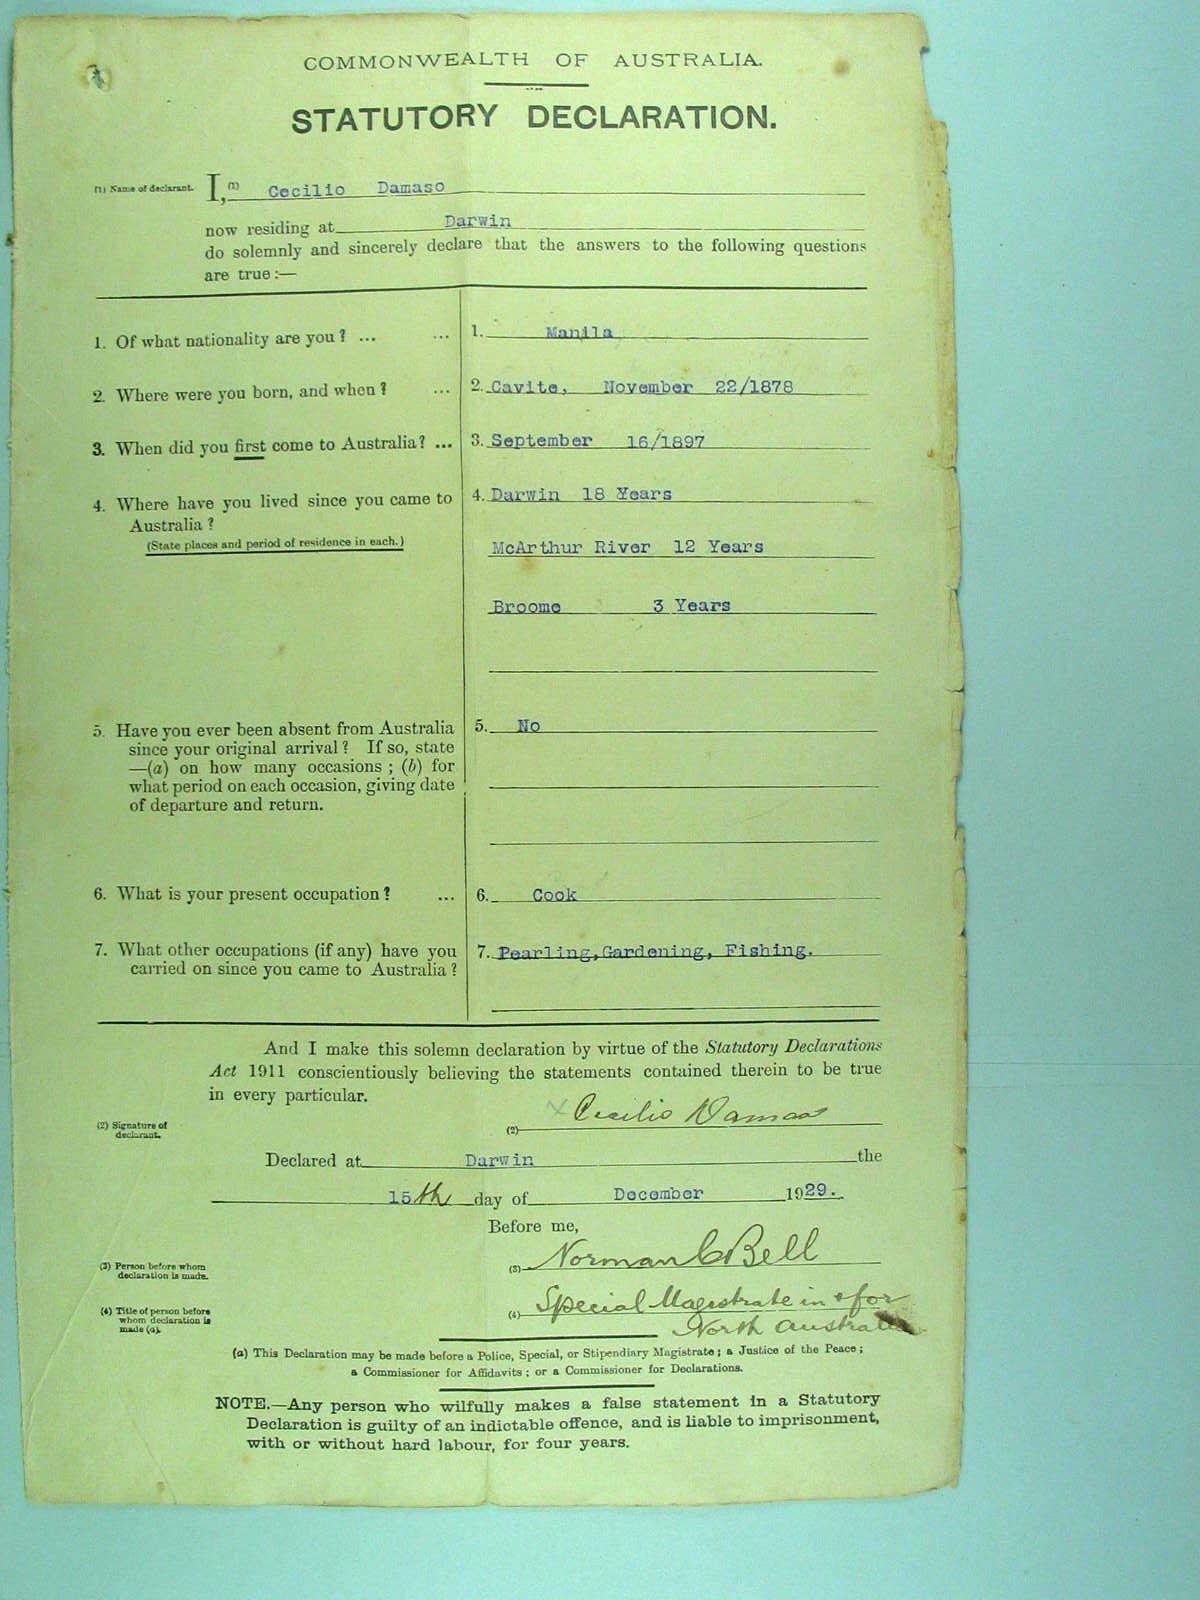 COMMONWEALTH OF AUSTRALIA.
STATUTORY DECLARATION.
(1) Name of declarant. I,(1) Cecilio Damaso
now residing at Darwin
do solemnly and sincerely declare that the answers to the following questions
are true:—
1. Of what nationality are you? ... ... 1. Manila
2. Where were you born, and when? ... 2. Cavite, November 22/1878
3. When did you first come to Australia? ... 3. September 16/1897
4. Where have you lived since you came to 4. Darwin 18 Years
Australia?
(State places and period of residence in each.)
McArthur River 12 Years
Broome 3 Years
5. Have you ever been absent from Australia 5. No
since your original arrival? If so, state
—(a) on how many occasions; (b) for
what period on each occasion, giving date
of departure and return.
6. What is your present occupation? ... 6. Cook
7. What other occupations (if any) have you 7. Pearling, Gardening, Fishing.
carried on since you came to Australia?
And I make this solemn declaration by virtue of the Statutory Declarations
Act 1911 conscientiously believing the statements contained therein to be true
in every particular.
(2) Signature of
declarant.
(2) X Cecilio Damaso
Declared at Darwin the
15th day of December 1929.
Before me,
(3) Person before whom
declaration is made.
(3) Norman C Bell
(4) Title of person before
whom declaration is
made (a).
(4) Special Magistrate in & for
North Australia
(a) This Declaration may be made before a Police, Special, or Stipendiary Magistrate; a Justice of the Peace;
a Commissioner for Affidavits; or a Commissioner for Declarations.
NOTE.—Any person who wilfully makes a false statement in a Statutory
Declaration is guilty of an indictable offence, and is liable to imprisonment,
with or without hard labour, for four years.